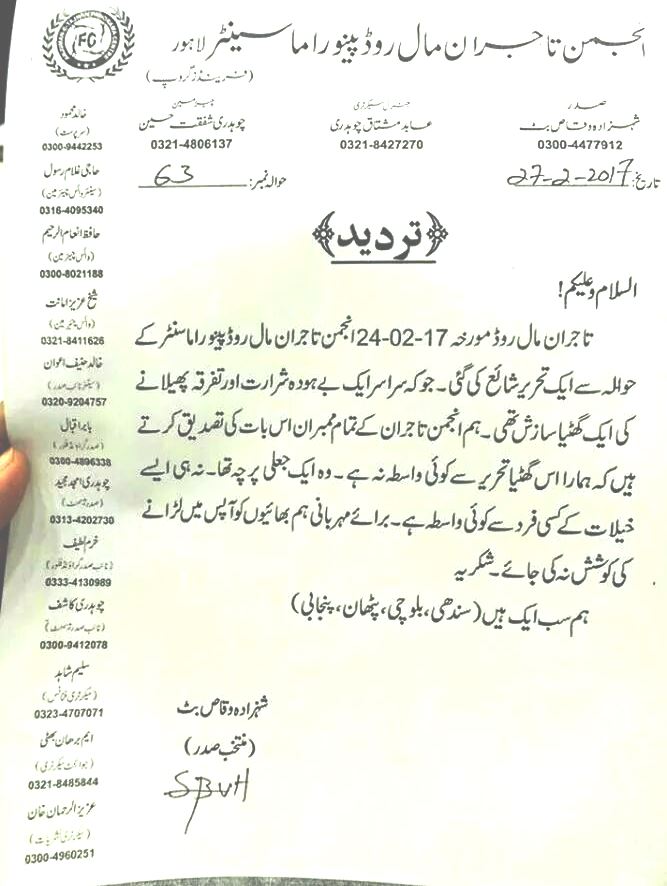 انجمن تاجران مال روڈ پینوراما سینٹر لاہور
(فرینڈز گروپ)
FC
صدر
شہزادہ وقاص بٹ
0300-4477912
جنرل سیکرٹری
عابد مشتاق چوہدری
0321-8427270
چیئرمین
چوہدری شفقت حسین
0321-4806137
تاریخ: 27-2-2017
حوالہ نمبر: 63
خالد محمود
(سرپرست)
0300-9442253
حاجی غلام رسول
(سینئر وائس چیئرمین)
0316-4095340
حافظ انعام الرحیم
(وائس چیئرمین)
0300-8021188
شیخ عزیز امانت
(وائس چیئرمین)
0321-8411626
خالد حنیف اعوان
(سینئر نائب صدر)
0320-9204757
بابر اقبال
(صدر گراؤنڈ فلور)
0300-4896338
چوہدری امجد مجید
(صدر بیسمنٹ)
0313-4202730
خرم لطیف
(نائب صدر گراؤنڈ فلور)
0333-4130989
چوہدری کاشف
(نائب صدر بیسمنٹ)
0300-9412078
سلیم شاہد
(سیکرٹری فنانس)
0323-4707071
ایم برھان بھٹی
(جوائنٹ سیکرٹری)
0321-8485844
عزیز الرحمان خان
(سیکرٹری نشریات)
0300-4960251
تردید
السلام وعلیکم!
تاجران مال روڈ مورخہ 17-02-24 انجمن تاجران مال روڈ پینوراما سنٹر کے
حوالہ سے ایک تحریر شائع کی گئی۔ جو کہ سراسر ایک بے ہودہ شرارت اور تفرقہ پھیلانے
کی ایک گھٹیا سازش تھی۔ ہم انجمن تاجران کے تمام ممبران اس بات کی تصدیق کرتے
ہیں کہ ہمارا اس گھٹیا تحریر سے کوئی واسطہ نہ ہے۔ وہ ایک جعلی پرچہ تھا۔ نہ ہی ایسے
خیلات کے کسی فرد سے کوئی واسطہ ہے۔ برائے مہربانی ہم بھائیوں کو آپس میں لڑانے
کی کوشش نہ کی جائے۔ شکریہ
ہم سب ایک ہیں (سندھی، بلوچی، پٹھان، پنجابی)
شہزادہ وقاص بٹ
(منتخب صدر)